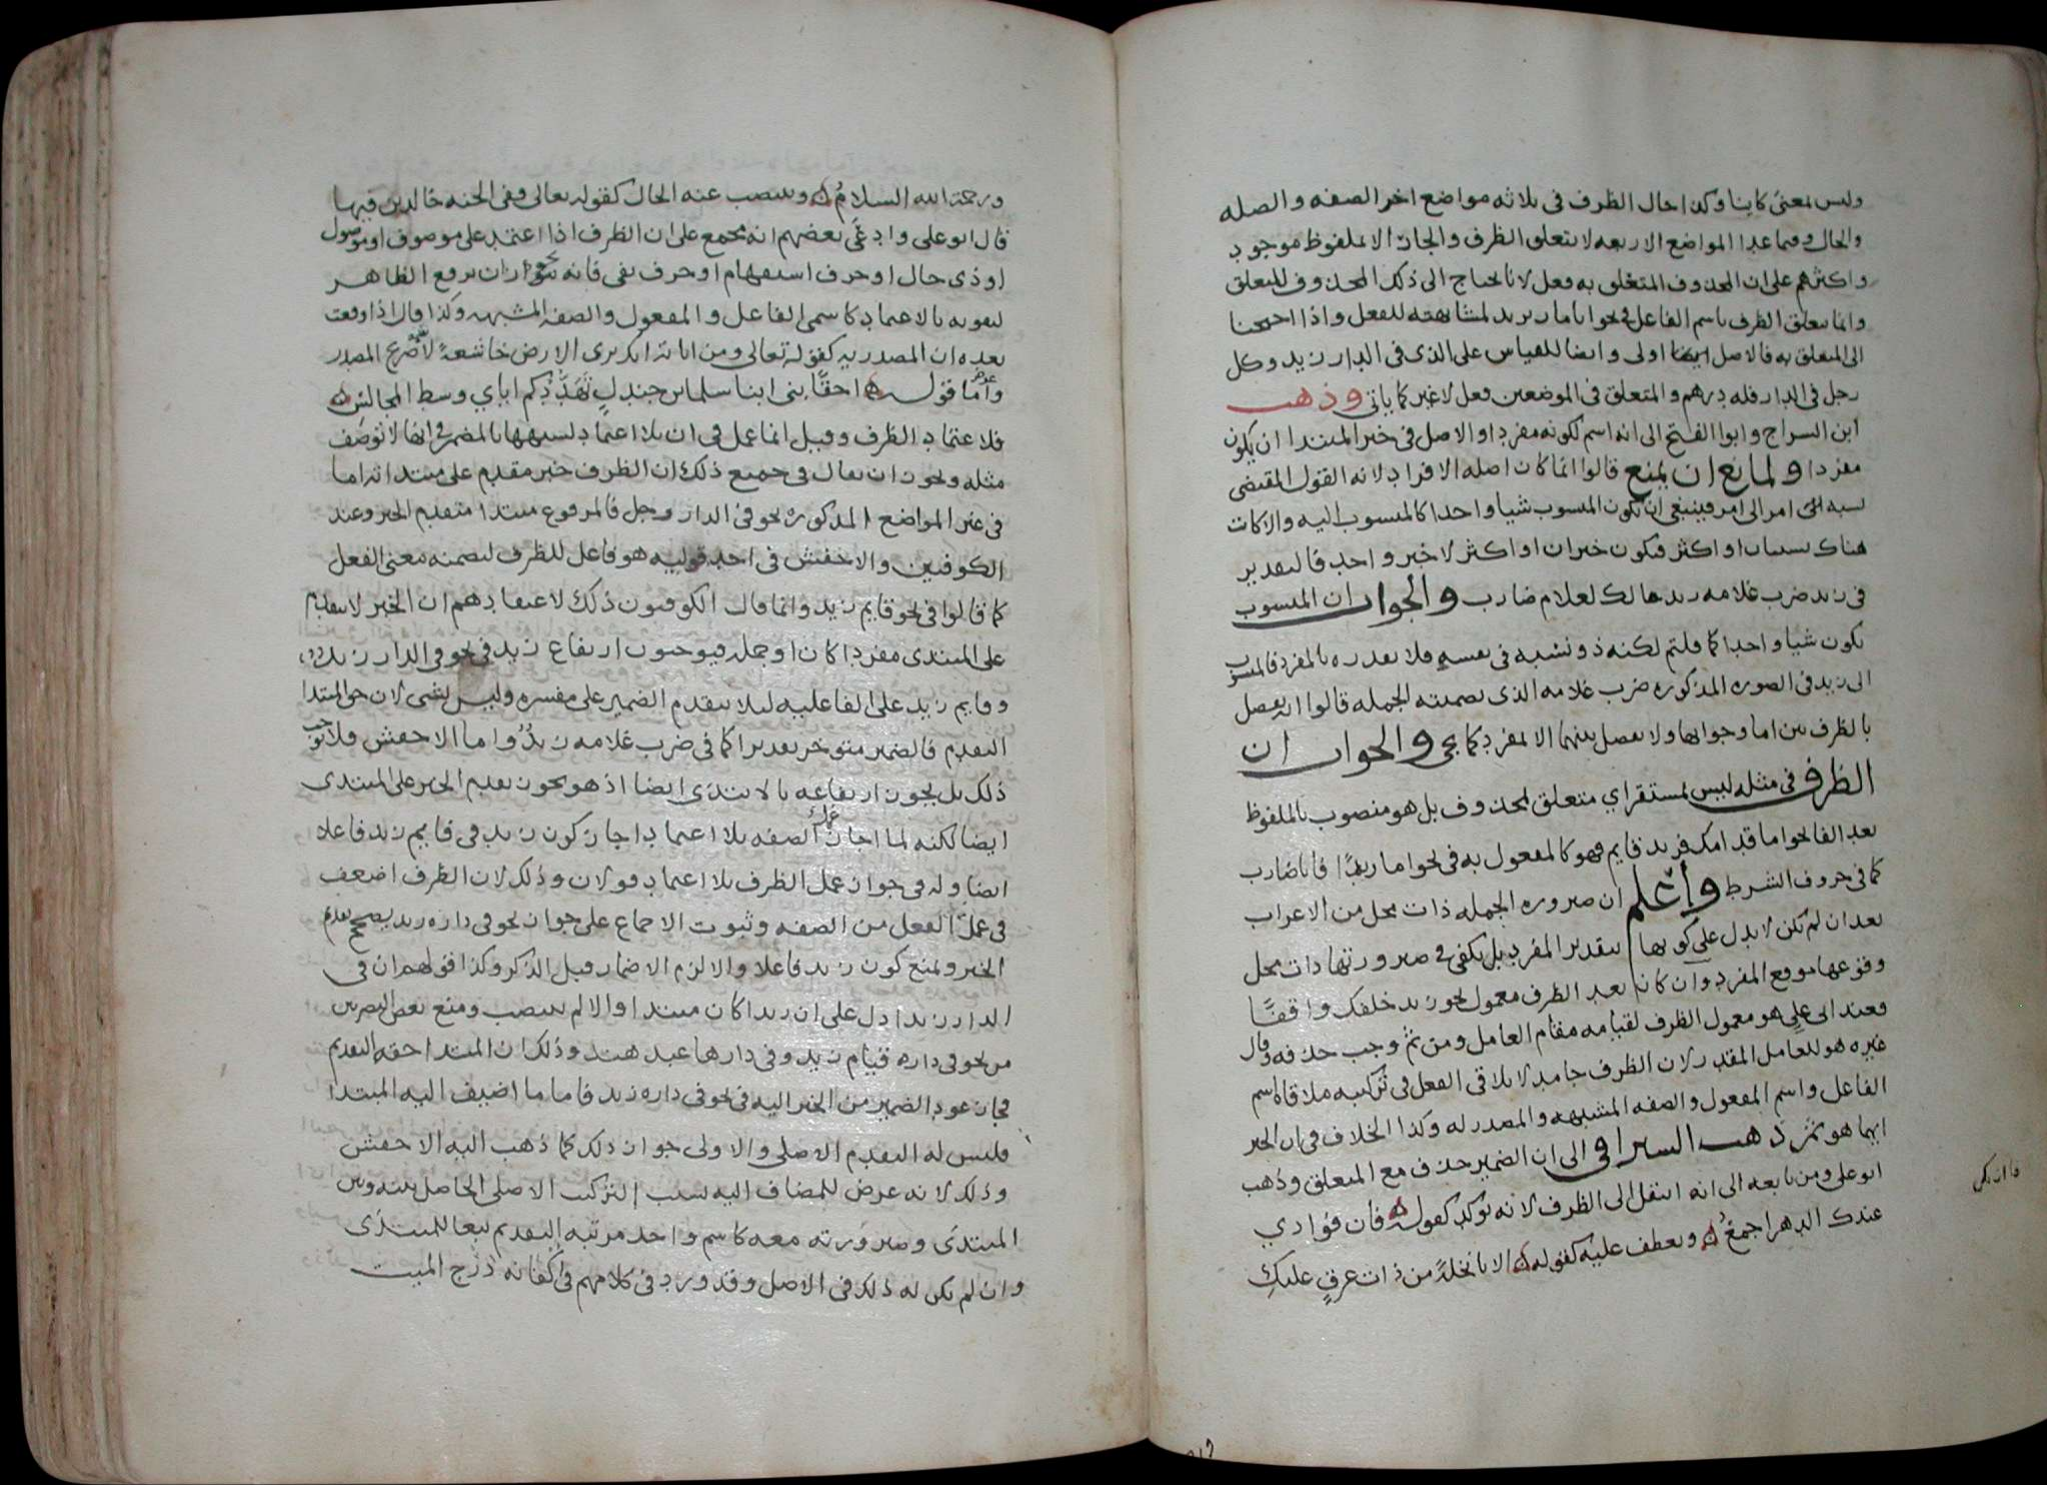 وليس بمعنى كاينا وكذا حال الظرف في ثلاثه مواضع اخر الصفه والصله
والحال وفيما عدا المواضع الاربعه لا يتعلق الظرف والجار الا بملفوظ موجود
واكثرهم على ان المحذوف المتعلق به فعل لانا نحتاج الى ذلك المحذوف للتعلق
وانما يتعلق الظرف باسم الفاعل في نحو انا مار بزيد لمشابهته للفعل واذا احتجنا
الى المتعلق به فالاصل اولى وايضا للقياس على الذي في الدار زيد وكل
رجل في الدار فله درهم والمتعلق في الموضعين فعل لا غير كما ياتي وذهب
ابن السراج وابوا الفتح الى انه اسم لكونه مفردا والاصل في خبر المبتدا ان يكون
مفردا ولمانع ان يمنع قالوا انما كان اصله الافراد لانه القول المقتضى
نسبه امر الى امر فينبغي ان يكون المنسوب شيا واحدا كالمنسوب اليه والا كان
هناك نسبتان او اكثر فيكون خبران او اكثر لا خبر واحد فالتقدير
في زيد ضرب غلامه زيد مالك لغلام ضارب والجواب ان المنسوب
يكون شيا واحدا كما قلتم لكنه ذو نسبه في نفسه فلا نقدره بالمفرد فالمنسوب
الى زيد في الصوره المذكوره ضرب غلامه الذي تضمنته الجمله قالوا انه يفصل
بالظرف بين اما وجوابها ولا يفصل بينهما الا بمفرد كما يجي والجواب ان
الظرف في مثله ليس بمستقر اي متعلق بمحذوف بل هو منصوب بالملفوظ
بعد الفا نحو اما قدامك فزيد قايم فهو كالمفعول به في نحو اما زيدًا فانا ضارب
كما في حروف الشرط وأعلم ان صيروره الجمله ذات محل من الاعراب
بعد ان لم تكن لا يدل على كونها بتقدير المفرد بل يكفي في صيرورتها ذات محل
وقوعها موقع المفرد وان كان بعد الظرف معمول نحو زيد خلفك واقفًا
فعند ابي علي هو معمول الظرف لقيامه مقام العامل ومن ثم وجب حذفه وقال
غيره هو للعامل المقدر لان الظرف جامد لا يلاقي الفعل في تركيبه ملاقاة اسم
الفاعل واسم المفعول والصفه المشبهه والمصدر له وكذا الخلاف في ان الخبر
ايهما هو ثم ذهب السيرافي الى ان الضمير حذف مع المتعلق وذهب
ابو علي ومن تابعه الى انه انتقل الى الظرف لانه يوكد كقوله فان فوادي
عندك الدهر اجمعُ ويعطف عليه كقوله الا يا نخلةً من ذات عرقٍ عليكِ
فان يكن
ورحمة الله السلامُ وينتصب عنه الحال كقوله تعالى وفي الجنه خالدين فيها
قال ابو على وادعى بعضهم انه مجمع على ان الظرف اذا اعتمد على موصوف او موصول
او ذى حال او حرف استفهام او حرف نفى فانه يجوز ان يرفع الظاهر
لتقويه بالاعتماد كاسمى الفاعل والمفعول والصفه المشبهه وكذا قال اذا وقعت
بعده ان المصدريه كقوله تعالى ومن اياته انك ترى الارض خاشعةً المصدر
واما قوله احقًا بنى ابنا سلمى بن جندلٍ تَهَدُّدُكم اياي وسط المجالسِ
فلاعتماد الظرف وقيل انما عمل في ان بلا اعتماد لشبهها بالمضمر في انها لا توصف
مثله ويجوز ان يقال في جميع ذلك ان الظرف خبر مقدم على مبتدائه اما
في غير المواضع المذكورة نحو في الدار رجل فالمرفوع مبتدا متقدم الخبر وعند
الكوفيين والاخفش في احد قوليه هو فاعل للظرف لتضمنه معنى الفعل
كما قالوا في نحو قايم زيد وانما قال الكوفيون ذلك لاعتقادهم ان الخبر لا يتقدم
على المبتدى مفردا كان او جمله فيوجبون ارتفاع زيد في نحو في الدار زيد
وقايم زيد على الفاعليه ليلا يتقدم الضمير على مفسره وليس بشى لان حق المبتدا
التقدم فالضمير متوخر تقديرا كما في ضرب غلامه زيدٌ واما الاخفش فلا يوجب
ذلك بل يجوز ارتفاعه بالابتدى ايضا اذ هو يجوز تقديم الخبر على المبتدى
ايضا لكنه لما اجاز عمل الصفه بلا اعتماد اجاز كون زيد في قايم زيد فاعلا
ايضا وله في جواز عمل الظرف بلا اعتماد قولان وذلك لان الظرف اضعف
في عمل الفعل من الصفه وثبوت الاجماع على جواز نحو في داره زيد يصحح تقدم
الخبر ويمنع كون زيد فاعلا والا لزم الاضمار قبل الذكر وكذا قولهم ان في
الدار زيدا دل على ان زيدا كان مبتدا والا لم ينتصب ومنع بعض البصريين
من نحو في داره قيام زيد وفي دارها عبد هند وذلك ان المبتدا حقه التقديم
فجاز عود الضمير من الخبر اليه في نحو في داره زيد فاما ما اضيف اليه المبتدا
فليس له التقدم الاصلي والاولى جواز ذلك كما ذهب اليه الاخفش
وذلك لانه عرض للمضاف اليه بسبب التركيب الاصلى الحاصل بينه وبين
المبتدى وصيرورته معه كاسم واحد مرتبه التقديم تبعا للمبتدى
وان لم يكن له ذلك في الاصل وقد ورد في كلامهم في اكفانه دُرِج الميت